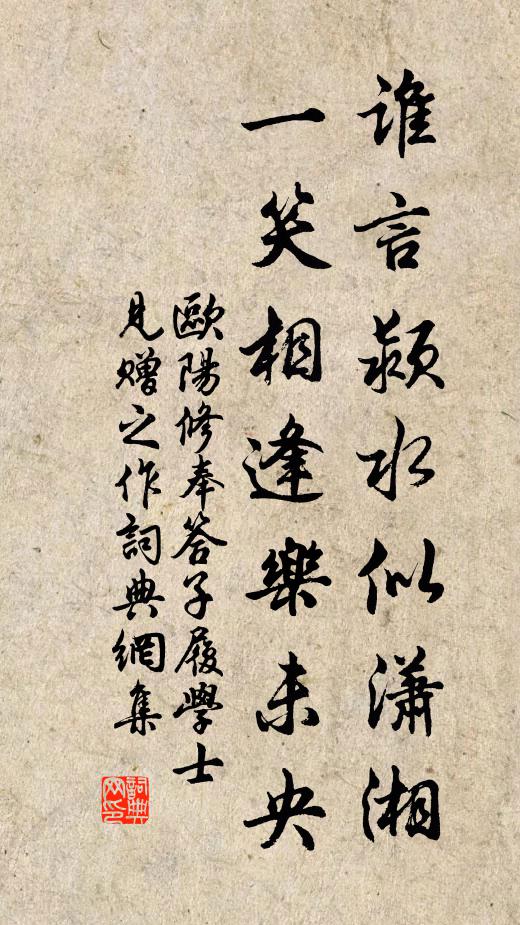 谁言颍水似潇湘
一笑相逢樂未央
歐陽修奉答子履學士
見赠之作詞典網集
詞典
网印